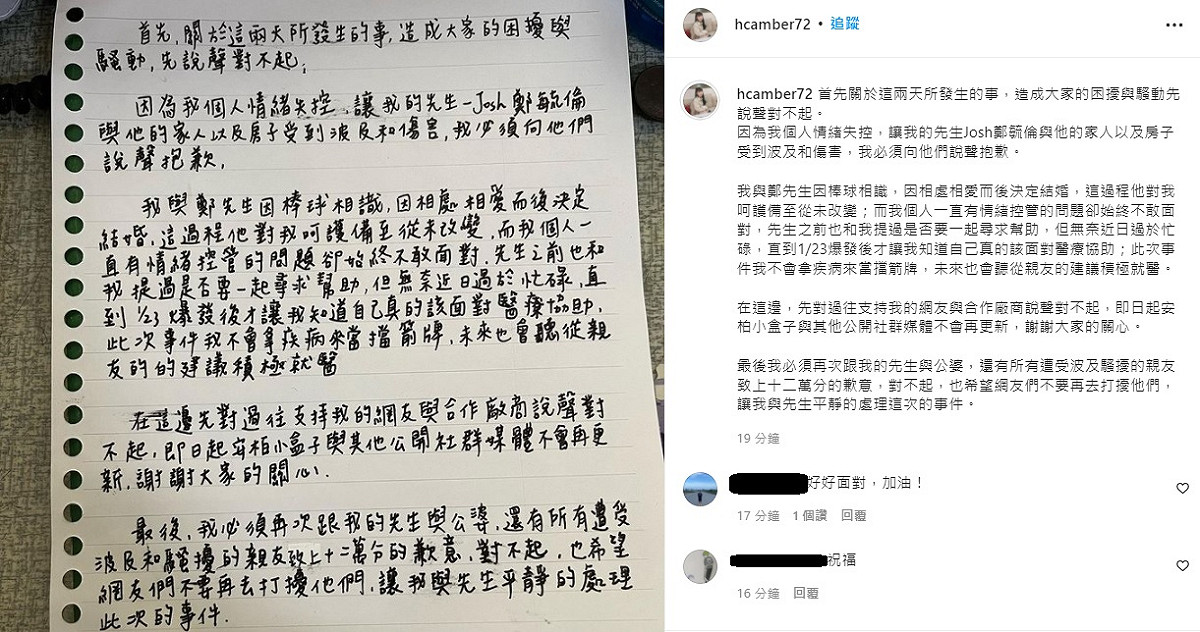 首先,關於這兩天所發生的事,造成大家的困擾與
騷動,先說聲對不起;
因為我個人情緒失控,讓我的先生-Josh鄭毓倫
與他的家人以及房子受到波及和傷害,我必須向他們
說聲抱歉,
我與鄭先生因棒球相識,因相處相愛而後決定
結婚,這過程他對我呵護備至從未改變,而我個人一
直有情緒控管的問題卻始終不敢面對,先生之前也和
我提過是否要一起尋求幫助,但無奈近日過於忙碌,直
到1/23爆發後才讓我知道自己真的該面對醫療協助,
此次事件我不會拿疾病來當擋箭牌,未來也會聽從親
友的的建議積極就醫
在這邊先對過往支持我的網友與合作廠商說聲對
不起,即日起安柏小盒子與其他公開社群媒體不會再更
新,謝謝大家的關心.
最後,我必須再次跟我的先生與公婆,還有所有遭受
波及和騷擾的親友致上十二萬分的歉意,對不起,也希望
網友們不要再去打擾他們,讓我與先生平靜的處理
此次的事件.
hcamber72 • 追蹤
hcamber72 首先關於這兩天所發生的事,造成大家的困擾與騷動先
說聲對不起。
因為我個人情緒失控,讓我的先生Josh鄭毓倫與他的家人以及房子
受到波及和傷害,我必須向他們說聲抱歉。
我與鄭先生因棒球相識,因相處相愛而後決定結婚,這過程他對我
呵護備至從未改變;而我個人一直有情緒控管的問題卻始終不敢面
對,先生之前也和我提過是否要一起尋求幫助,但無奈近日過於忙
碌,直到1/23爆發後才讓我知道自己真的該面對醫療協助;此次事
件我不會拿疾病來當擋箭牌,未來也會聽從親友的建議積極就醫。
在這邊,先對過往支持我的網友與合作廠商說聲對不起,即日起安
柏小盒子與其他公開社群媒體不會再更新,謝謝大家的關心。
最後我必須再次跟我的先生與公婆,還有所有遭受波及騷擾的親友
致上十二萬分的歉意,對不起,也希望網友們不要再去打擾他們,
讓我與先生平靜的處理這次的事件。
19 分鐘
好好面對,加油!
17 分鐘 1 個讚 回覆
祝福
16 分鐘 回覆